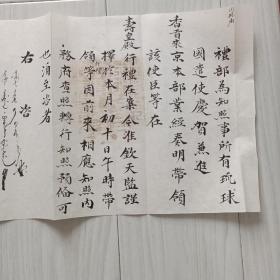 禮部為知照事所有琉球
國遣使慶賀兼進
香貢來京本部業經奏明帶領
該使臣等在
壽皇殿行禮在案今准欽天監謹
擇於本月初十日午時帶
領等因前來相應知照內
務府查照轉行知照預備可
也須至咨者
右咨